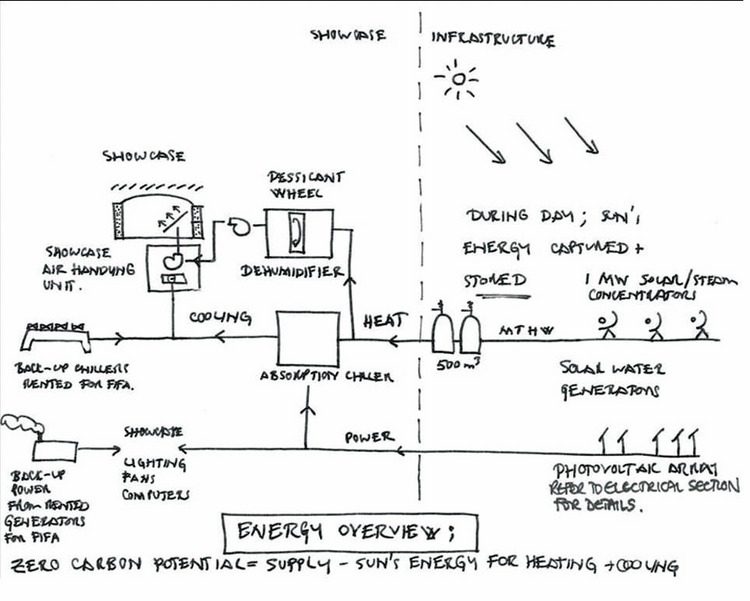 SHOWCASE
INFRASTRUCTURE
SHOWCASE
DESSICANT
WHEEL
DURING DAY; SUN'S
ENERGY CAPTURED +
STORED
SHOWCASE
AIR HANDLING
UNIT.
DEHUMIDIFIER
1 MW SOLAR/STEAM
CONCENTRATORS
COOLING
HEAT
MTHW
500m³
BACK-UP CHILLERS
RENTED FOR FIFA.
ABSORPTION CHILLER
SOLAR WATER
GENERATORS
SHOWCASE
LIGHTING
FANS
COMPUTERS
POWER
BACK-UP
POWER
FROM RENTED
GENERATORS
FOR FIFA
PHOTOVOLTAIC ARRAY
REFER TO ELECTRICAL SECTION
FOR DETAILS.
ENERGY OVERVIEW;
ZERO CARBON POTENTIAL = SUPPLY - SUN'S ENERGY FOR HEATING + COOLING